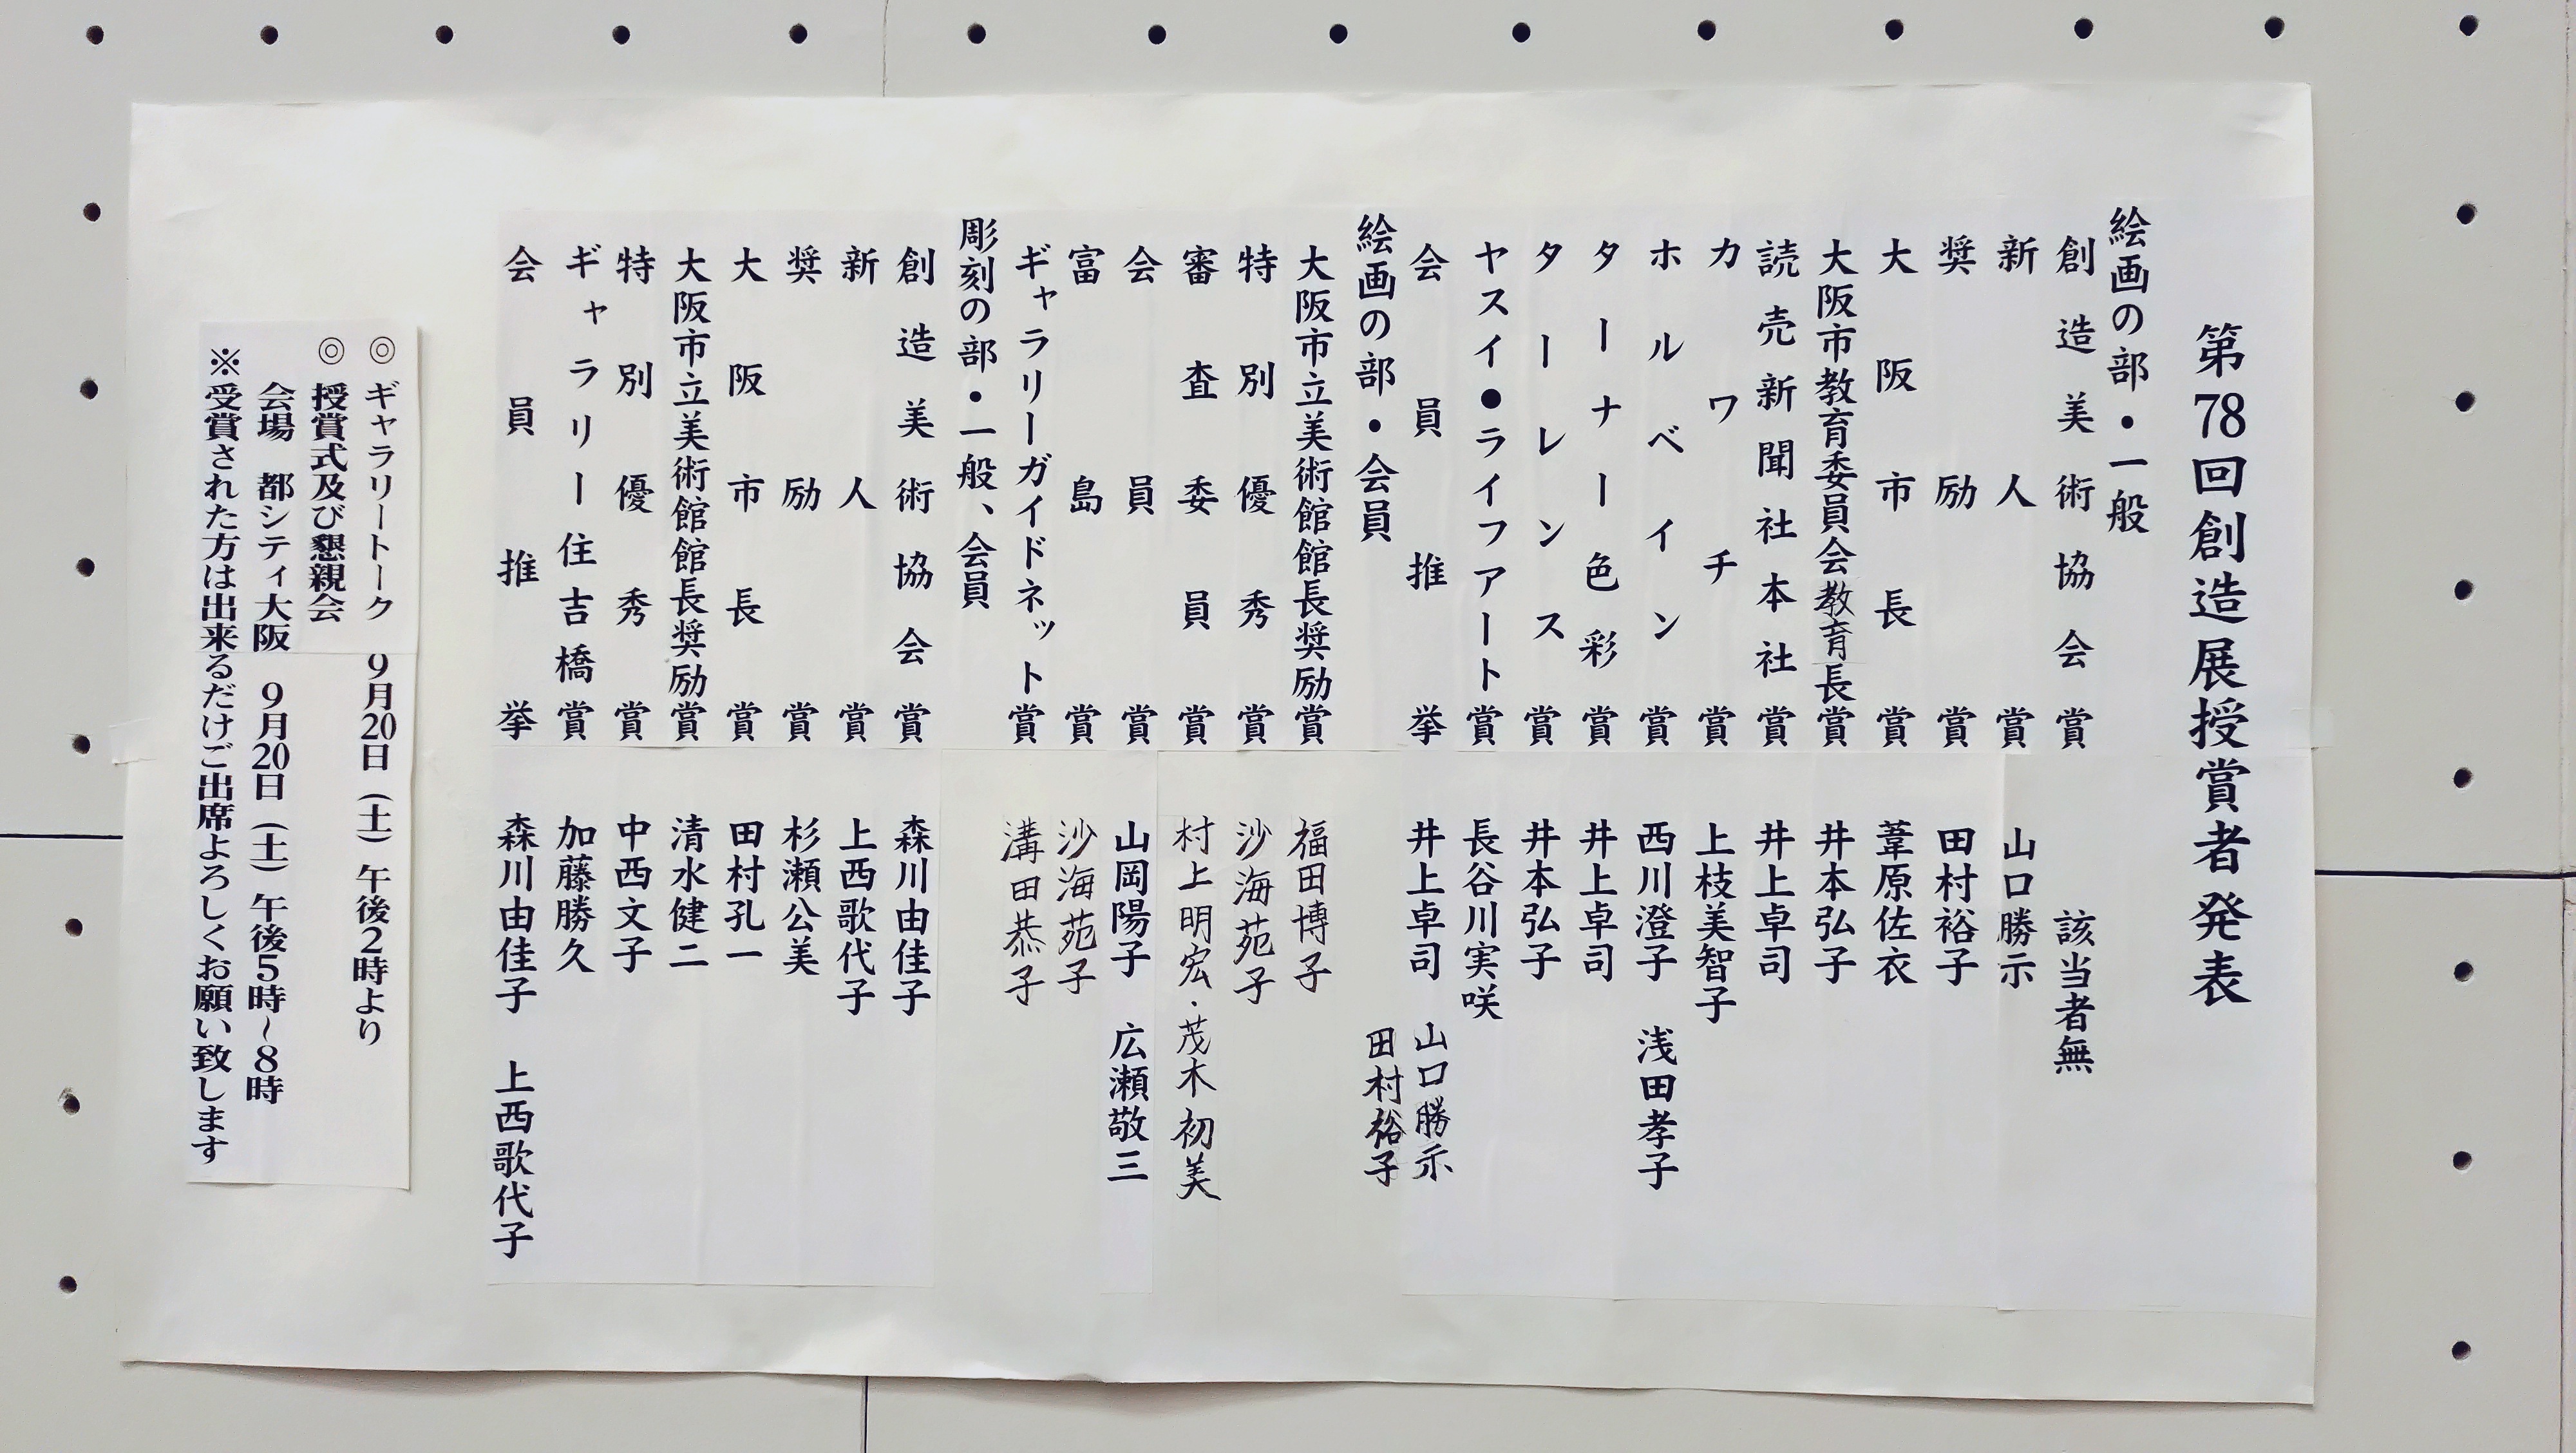 第78回創造展授賞者発表
絵画の部・一般
創造美術協会賞 該当者無
新人賞 山口勝示
奨励賞 田村裕子
大阪市長賞 葦原佐衣
大阪市教育委員会教育長賞 井本弘子
読売新聞社本社賞 井上卓司
カワチ賞 上枝美智子
ホルベイン賞 西川澄子 浅田孝子
ターナー色彩賞 井上卓司
ターレンス賞 井本弘子
ヤスイ●ライフアート賞 長谷川実咲
会員推挙 井上卓司 山口勝示
田村裕子
絵画の部・会員
大阪市立美術館館長奨励賞 福田博子
特別優秀賞 沙海苑子
審査委員賞 村上明宏・茂木初美
会員賞 山岡陽子 広瀬敬三
富島賞 沙海苑子
ギャラリーガイドネット賞 溝田恭子
彫刻の部・一般、会員
創造美術協会賞 森川由佳子
新人賞 上西歌代子
奨励賞 杉瀬公美
大阪市長賞 田村孔一
大阪市立美術館館長奨励賞 清水健二
特別優秀賞 中西文子
ギャラリー住吉橋賞 加藤勝久
会員推挙 森川由佳子 上西歌代子
◎ ギャラリートーク 9月20日（土）午後2時より
◎ 授賞式及び懇親会
会場 都シティ大阪 9月20日（土）午後5時～8時
※受賞された方は出来るだけご出席よろしくお願い致します